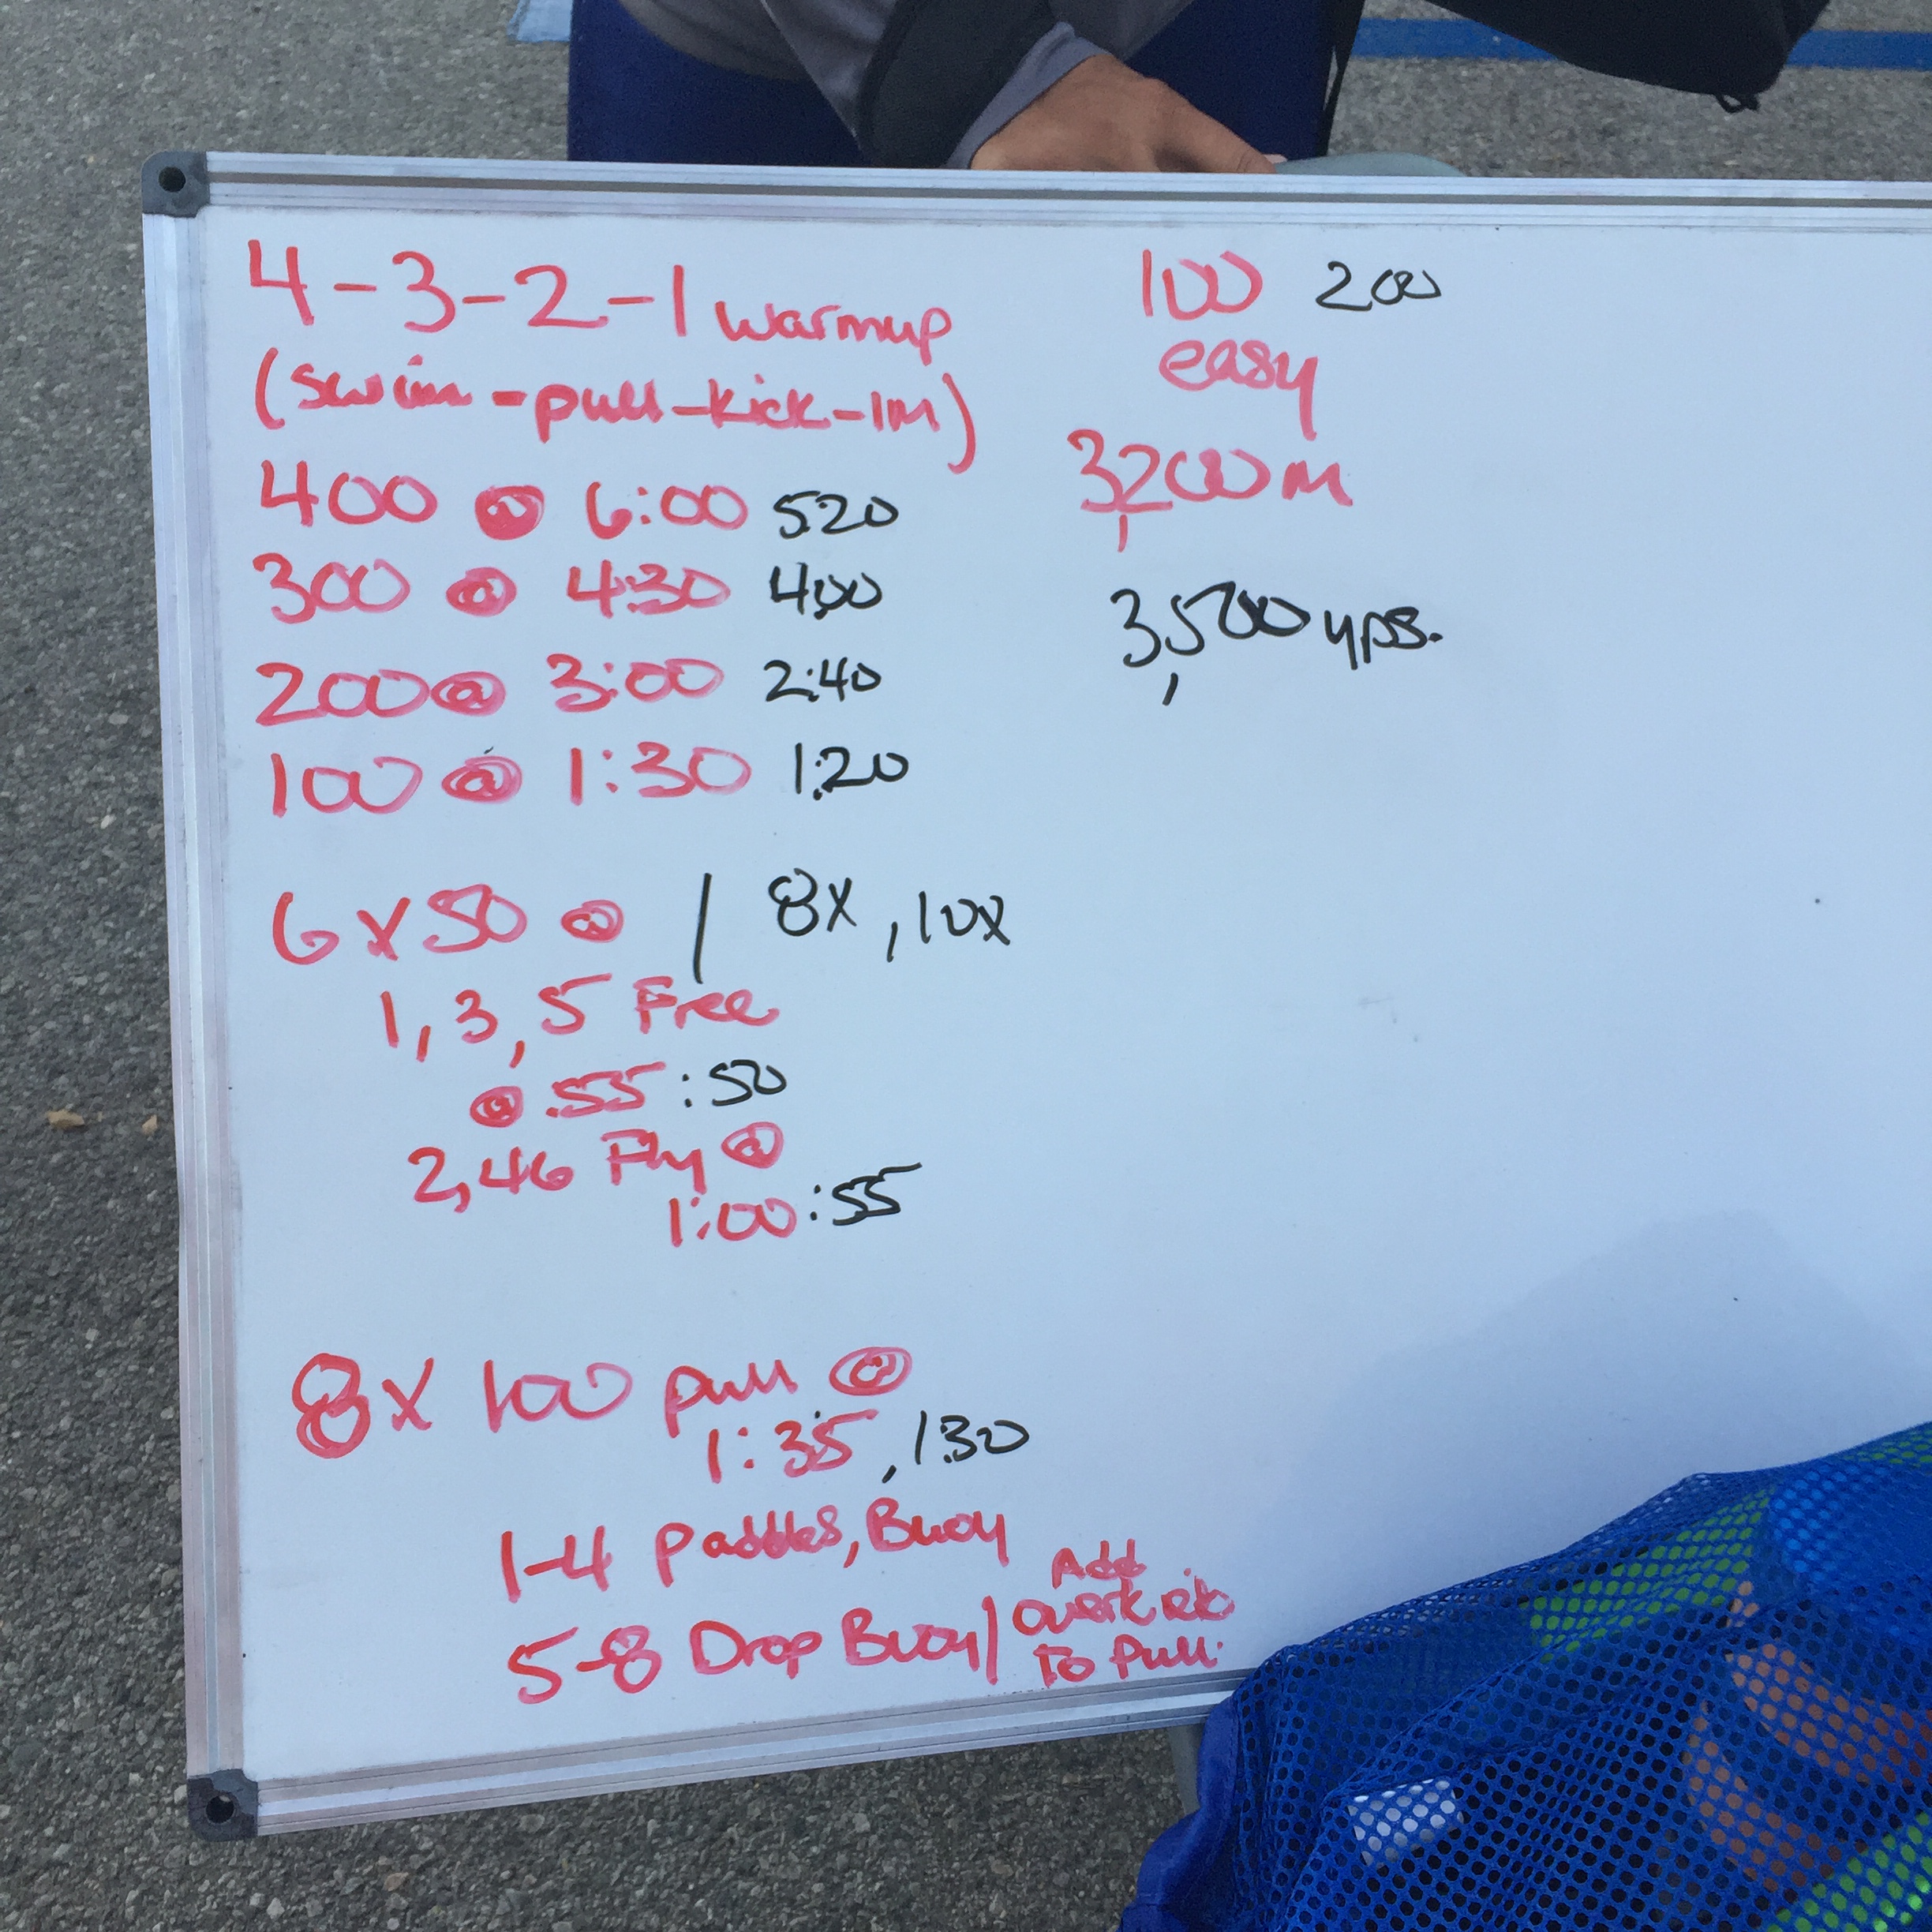 4-3-2-1 warmup
(swim-pull-kick-IM)
400 @ 6:00 5:20
300 @ 4:30 4:00
200 @ 3:00 2:40
100 @ 1:30 1:20
6 x 50 @ / 8x, 10x
1, 3, 5 Free
@ :55 :50
2,46 Fly @
1:00 :55
8x 100 pull @
1:35, 1:30
1-4 Paddles, Buoy
5-8 Drop Buoy/ Add
overkick
to Pull.
100 200
easy
3,200 m
3,500 yds.